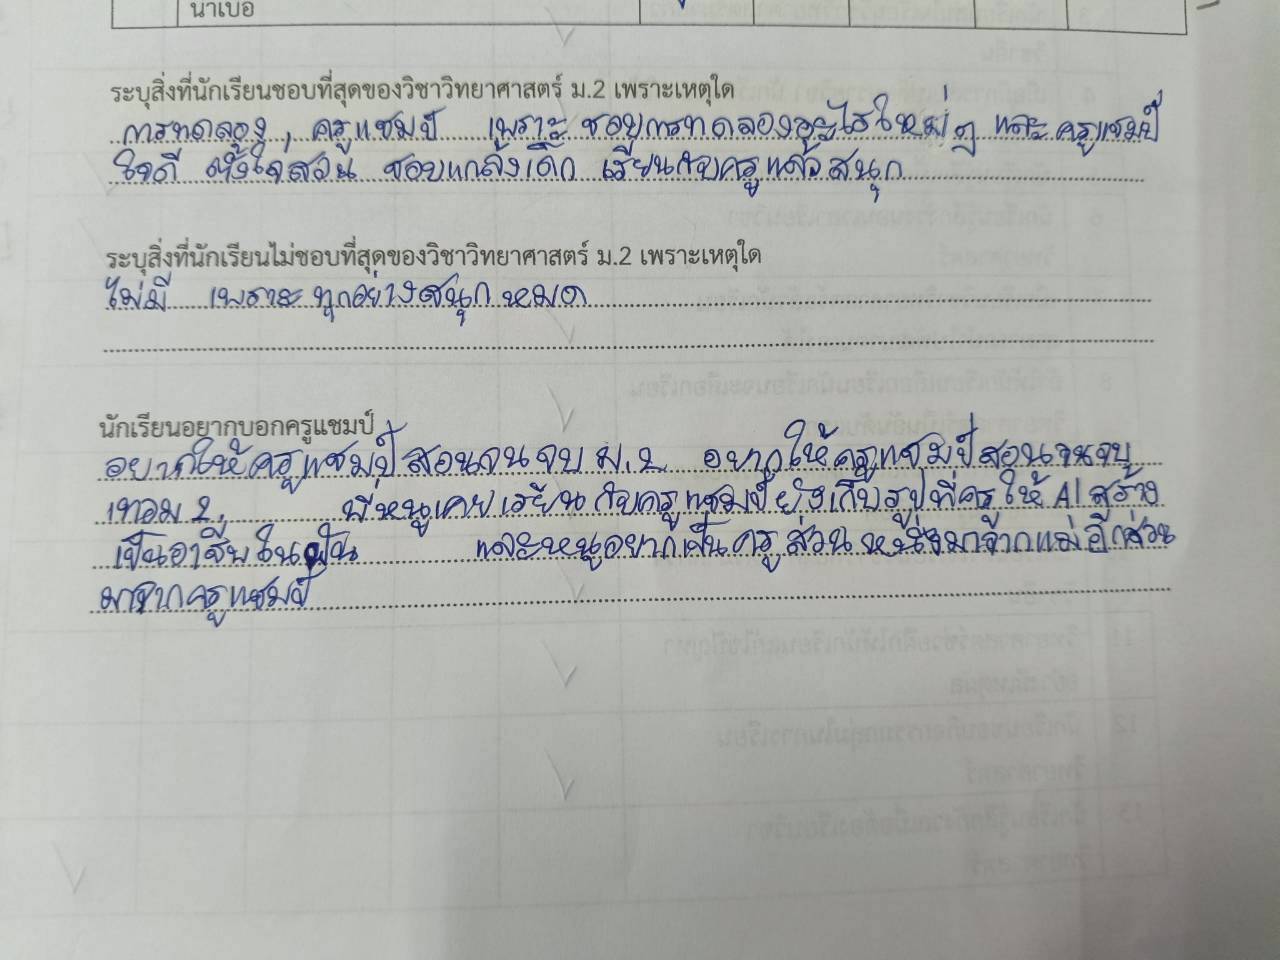 น่าเบื่อ
ระบุสิ่งที่นักเรียนชอบที่สุดของวิชาวิทยาศาสตร์ ม.2 เพราะเหตุใด
การทดลอง, ครูแชมป์ เพราะชอบการทดลองอะไรใหม่ๆ และครูแชมป์
ใจดี ตั้งใจสอน ชอบแกล้งเด็ก เรียนกับครูแล้วสนุก
ระบุสิ่งที่นักเรียนไม่ชอบที่สุดของวิชาวิทยาศาสตร์ ม.2 เพราะเหตุใด
ไม่มี เพราะทุกอย่างสนุกหมด
นักเรียนอยากบอกครูแชมป์
อยากให้ครูแชมป์สอนจนจบ ม.2 อยากให้ครูแชมป์สอนจนจบ
เทอม 2. พี่หนูเคยเรียนกับครูแชมป์ยังเก็บรูปที่ครูให้ AI สร้าง
เป็นอาชีพในฝัน และหนูอยากเป็นครูส่วนหนึ่งมาจากแม่อีกส่วน
มาจากครูแชมป์